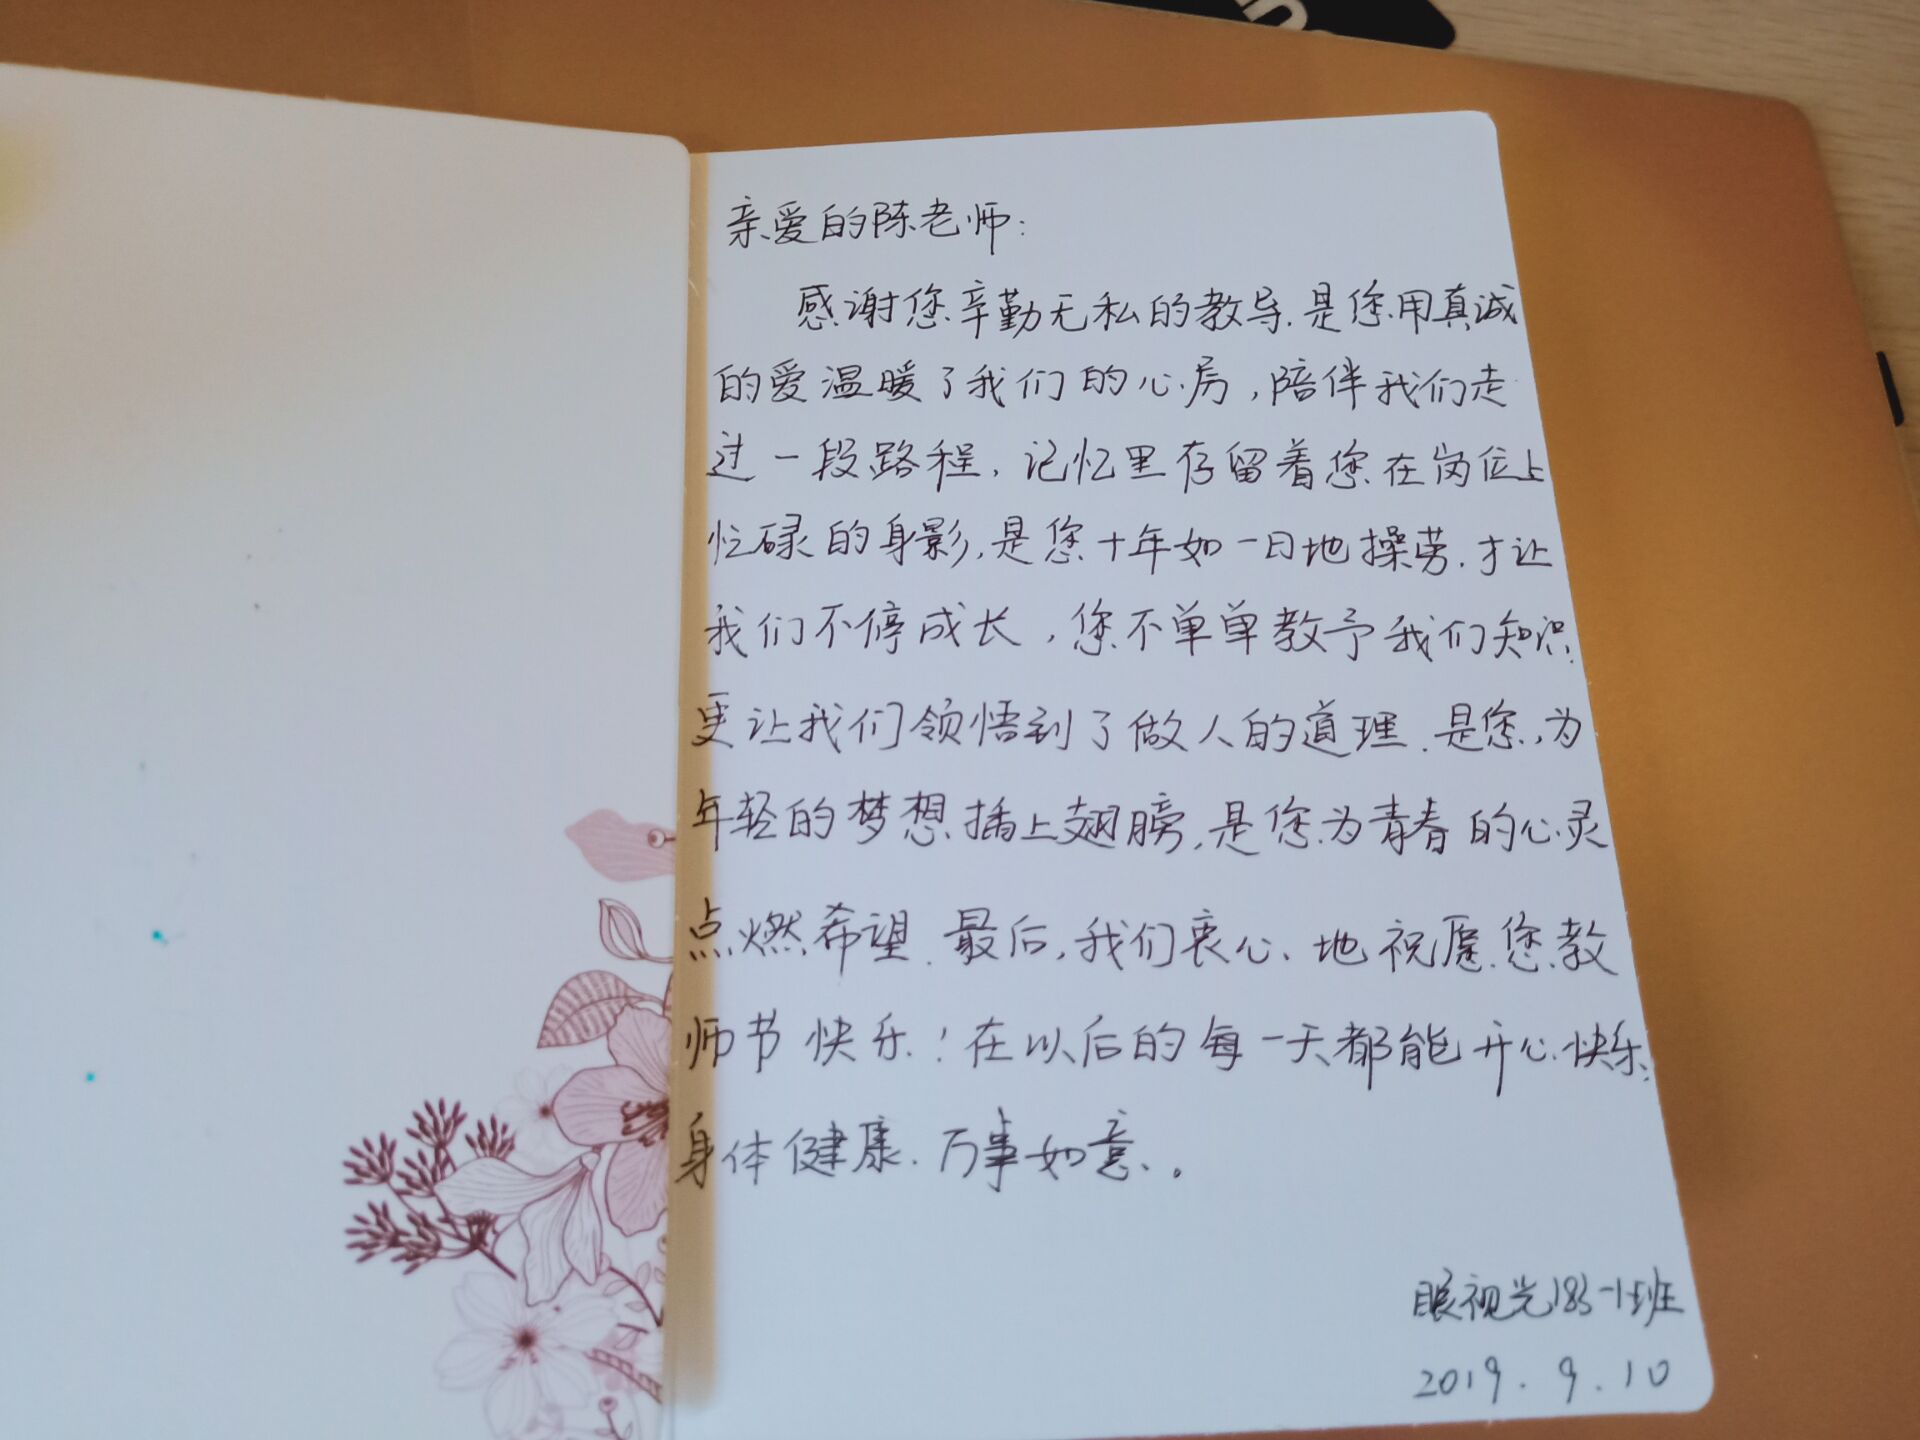 亲爱的陈老师：
感谢您辛勤无私的教导.是您用真诚
的爱温暖了我们的心房,陪伴我们走
过一段路程,记忆里存留着您在岗位上
忙碌的身影,是您十年如一日地操劳.才让
我们不停成长,您不单单教予我们知识.
更让我们领悟到了做人的道理.是您,为
年轻的梦想插上翅膀,是您为青春的心灵
点燃希望.最后,我们衷心、地祝愿您教
师节快乐！在以后的每一天都能开心快乐.
身体健康.万事如意.。
眼视光183-1班
2019.9.10